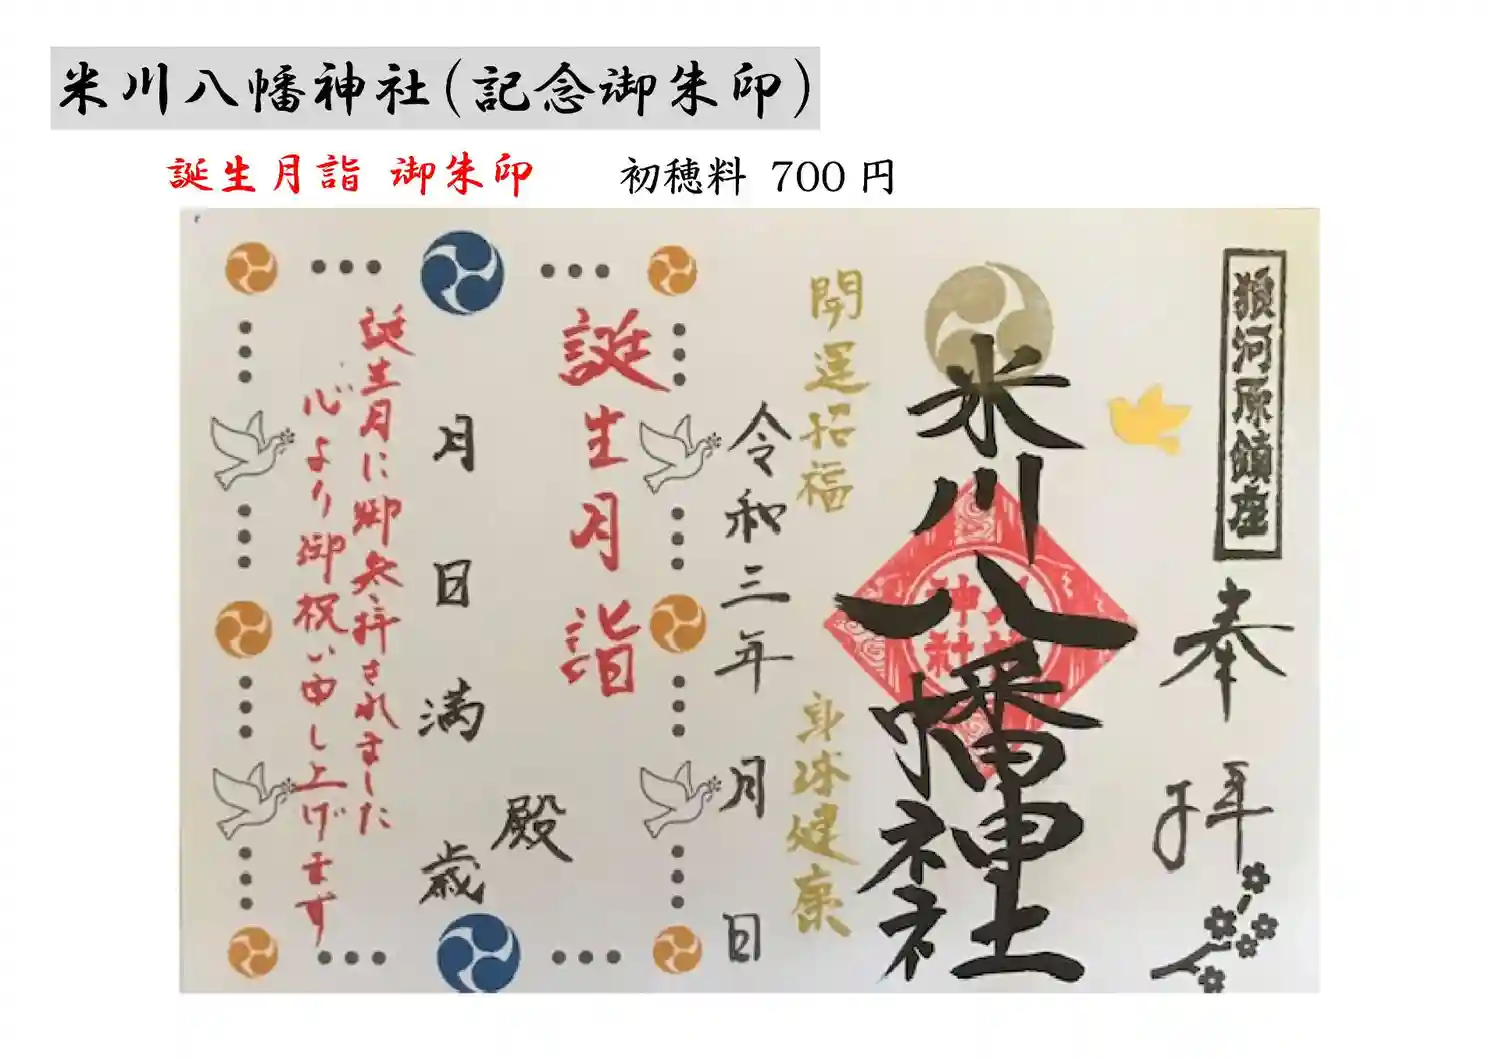 米川八幡神社(記念御朱印)
誕生月詣 御朱印 初穂料 700円
狼河原鎮座
奉拝
米川八幡神社
開運招福
身体健康
令和三年 月 日
誕生月詣
殿
月日満 歳
誕生月に御参拝されました
心より御祝い申し上げます